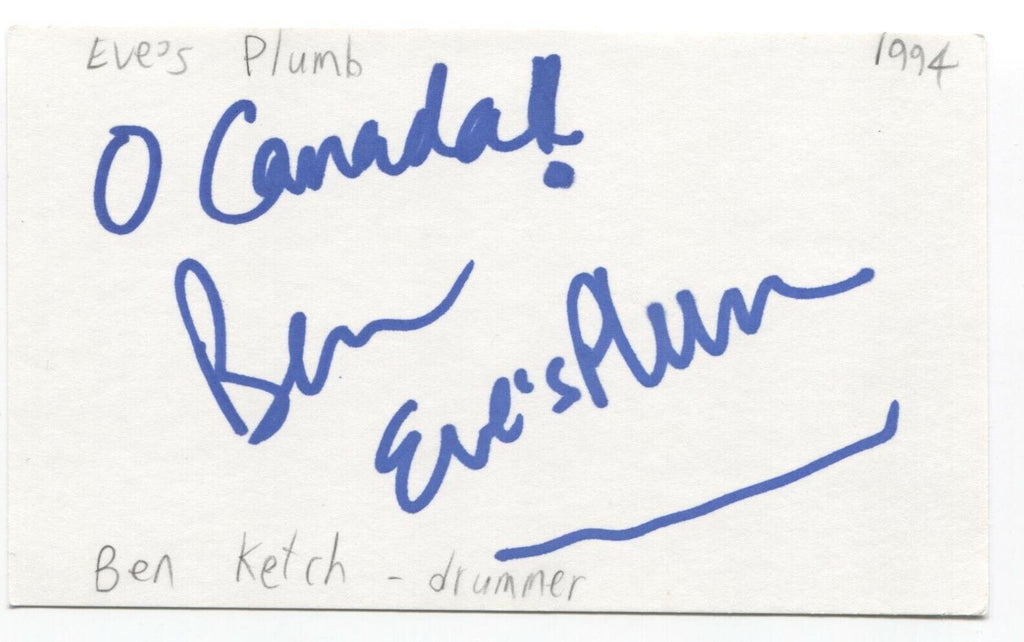 Eve's Plumb 1994
O Canada!
Ben
Eve's Plum
Ben Ketch - drummer